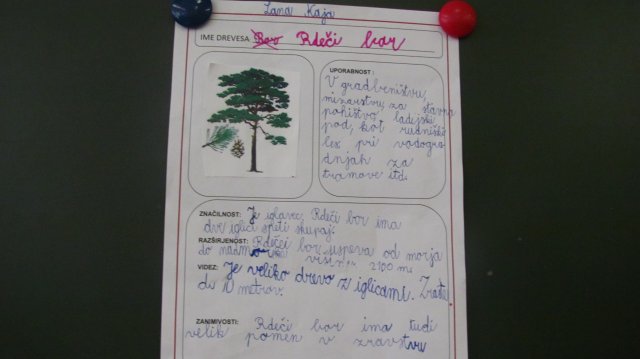 Lana Kaja
IME DREVESA: Bor Rdeči bor
UPORABNOST :
V gradbeništvu,
mizarstvu, za stavbno
pohištvo, ladijski
pod, kot rudniški
les pri vodogra
dnjah za
tramove itd.
ZNAČILNOST: Je iglavec. Rdeči bor ima
dve iglici speti skupaj.
RAZŠIRJENOST: Rdečei bor uspeva od morja
do nadmorske višine 2100 m.
VIDEZ: Je veliko drevo z iglicami. Zraste
do 10 metrov.
ZANIMIVOSTI: Rdeči bor ima tudi
velik pomen v zdravstvu